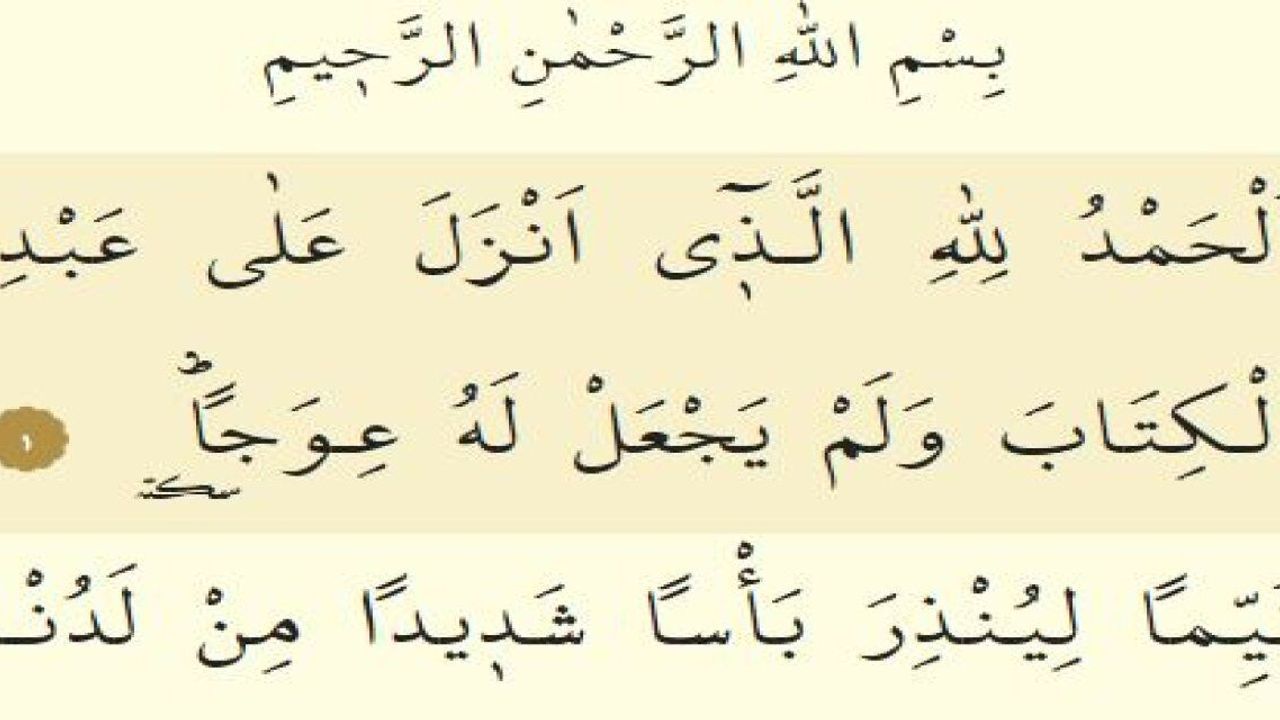 بِسْمِ اللّٰهِ الرَّحْمٰنِ الرَّحٖيمِ
اَلْحَمْدُ لِلّٰهِ الَّـذٖٓى اَنْزَلَ عَلٰى عَبْدِ
الْكِتَابَ وَلَمْ يَجْعَلْ لَهُ عِوَجًاؕ ١
سكته
قَيِّمًا لِيُنْذِرَ بَأْسًا شَدٖيدًا مِنْ لَدُنْ